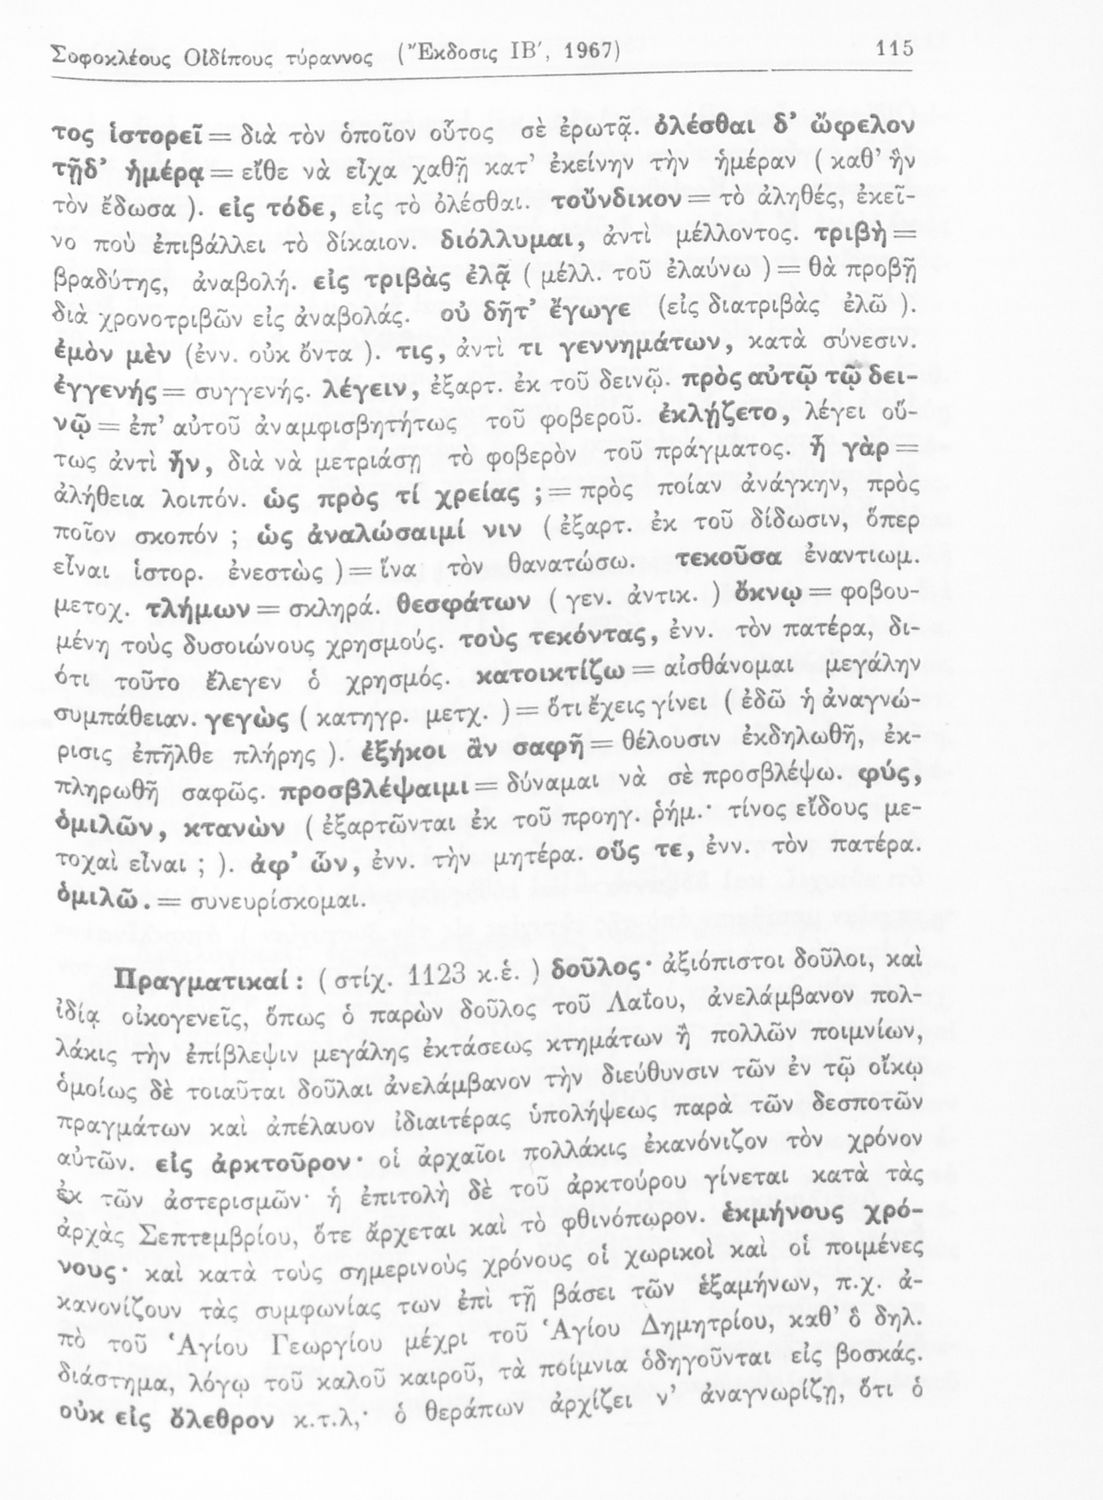 Σοφοκλέους Οἰδίπους τύραννος (Ἔκδοσις ΙΒ', 1967) 115
τος ἱστορεῖ = διὰ τὸν ὁποῖον οὗτος σὲ ἐρωτᾷ. ὀλέσθαι δ' ὤφελον
τῇδ' ἡμέρᾳ = εἴθε νὰ εἶχα χαθῆ κατ' ἐκείνην τὴν ἡμέραν ( καθ' ἣν
τὸν ἔδωσα ). εἰς τόδε, εἰς τὸ ὀλέσθαι. τοὔνδικον = τὸ ἀληθές, ἐκεῖ-
νο ποὺ ἐπιβάλλει τὸ δίκαιον. διόλλυμαι, ἀντὶ μέλλοντος. τριβὴ =
βραδύτης, ἀναβολή. εἰς τριβὰς ἐλᾷ ( μέλλ. τοῦ ἐλαύνω ) = θὰ προβῇ
διὰ χρονοτριβῶν εἰς ἀναβολάς. οὐ δῆτ' ἔγωγε (εἰς διατριβὰς ἐλῶ ).
ἐμὸν μὲν (ἐνν. οὐκ ὄντα ). τις, ἀντὶ τι γεννημάτων, κατὰ σύνεσιν.
ἐγγενής = συγγενής. λέγειν, ἐξαρτ. ἐκ τοῦ δεινῷ. πρὸς αὐτῷ τῷ δει-
νῷ = ἐπ' αὐτοῦ ἀναμφισβητήτως τοῦ φοβεροῦ. ἐκλῄζετο, λέγει οὕ-
τως ἀντὶ ἦν, διὰ νὰ μετριάσῃ τὸ φοβερὸν τοῦ πράγματος. ἦ γὰρ =
ἀλήθεια λοιπόν. ὡς πρὸς τί χρείας ; = πρὸς ποίαν ἀνάγκην, πρὸς
ποῖον σκοπόν ; ὡς ἀναλώσαιμί νιν ( ἐξαρτ. ἐκ τοῦ δίδωσιν, ὅπερ
εἶναι ἱστορ. ἐνεστὼς ) = ἵνα τὸν θανατώσω. τεκοῦσα ἐναντιωμ.
μετοχ. τλήμων = σκληρά. θεσφάτων ( γεν. ἀντικ. ) ὄκνῳ = φοβου-
μένη τοὺς δυσοιώνους χρησμούς. τοὺς τεκόντας, ἐνν. τὸν πατέρα, δι-
ότι τοῦτο ἔλεγεν ὁ χρησμός. κατοικτίζω = αἰσθάνομαι μεγάλην
συμπάθειαν. γεγὼς ( κατηγρ. μετχ. ) = ὅτι ἔχεις γίνει ( ἐδῶ ἡ ἀναγνώ-
ρισις ἐπῆλθε πλήρης ). ἐξήκοι ἂν σαφῆ = θέλουσιν ἐκδηλωθῆ, ἐκ-
πληρωθῆ σαφῶς. προσβλέψαιμι = δύναμαι νὰ σὲ προσβλέψω. φύς,
ὁμιλῶν, κτανὼν ( ἐξαρτῶνται ἐκ τοῦ προηγ. ῥήμ.· τίνος εἴδους με-
τοχαὶ εἶναι ; ). ἀφ' ὧν, ἐνν. τὴν μητέρα. οὕς τε, ἐνν. τὸν πατέρα.
ὁμιλῶ. = συνευρίσκομαι.
Πραγματικαί : ( στίχ. 1123 κ.ἑ. ) δοῦλος· ἀξιόπιστοι δοῦλοι, καὶ
ἰδίᾳ οἰκογενεῖς, ὅπως ὁ παρὼν δοῦλος τοῦ Λαΐου, ἀνελάμβανον πολ-
λάκις τὴν ἐπίβλεψιν μεγάλης ἐκτάσεως κτημάτων ἢ πολλῶν ποιμνίων,
ὁμοίως δὲ τοιαῦται δοῦλαι ἀνελάμβανον τὴν διεύθυνσιν τῶν ἐν τῷ οἴκῳ
πραγμάτων καὶ ἀπέλαυον ἰδιαιτέρας ὑπολήψεως παρὰ τῶν δεσποτῶν
αὐτῶν. εἰς ἀρκτοῦρον· οἱ ἀρχαῖοι πολλάκις ἐκανόνιζον τὸν χρόνον
ἐκ τῶν ἀστερισμῶν· ἡ ἐπιτολὴ δὲ τοῦ ἀρκτούρου γίνεται κατὰ τὰς
ἀρχὰς Σεπτεμβρίου, ὅτε ἄρχεται καὶ τὸ φθινόπωρον. ἑκμήνους χρό-
νους· καὶ κατὰ τοὺς σημερινοὺς χρόνους οἱ χωρικοὶ καὶ οἱ ποιμένες
κανονίζουν τὰς συμφωνίας των ἐπὶ τῇ βάσει τῶν ἑξαμήνων, π.χ. ἀ-
πὸ τοῦ Ἁγίου Γεωργίου μέχρι τοῦ Ἁγίου Δημητρίου, καθ' ὃ δηλ.
διάστημα, λόγῳ τοῦ καλοῦ καιροῦ, τὰ ποίμνια ὁδηγοῦνται εἰς βοσκάς.
οὐκ εἰς ὄλεθρον κ.τ.λ,· ὁ θεράπων ἀρχίζει ν' ἀναγνωρίζῃ, ὅτι ὁ